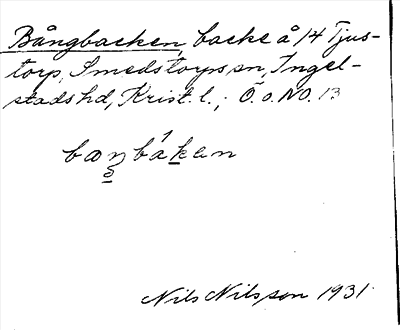 Bångbacken, backe å 14 Tjus-
torp, Smedstorps sn, Ingel-
stads hd, Krist. l.; Ö. o. NO. 13
baŋbákan
Nils Nilsson 1931